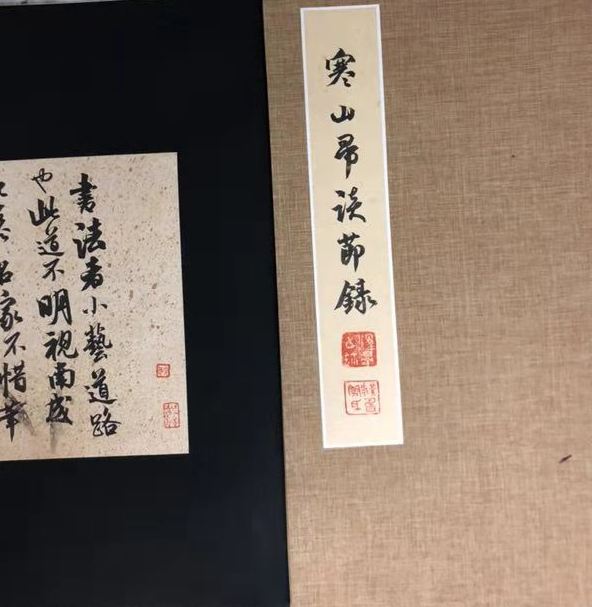 寒山帚谈節錄
書法者小藝道路
也此道不明視南成
名家不惜